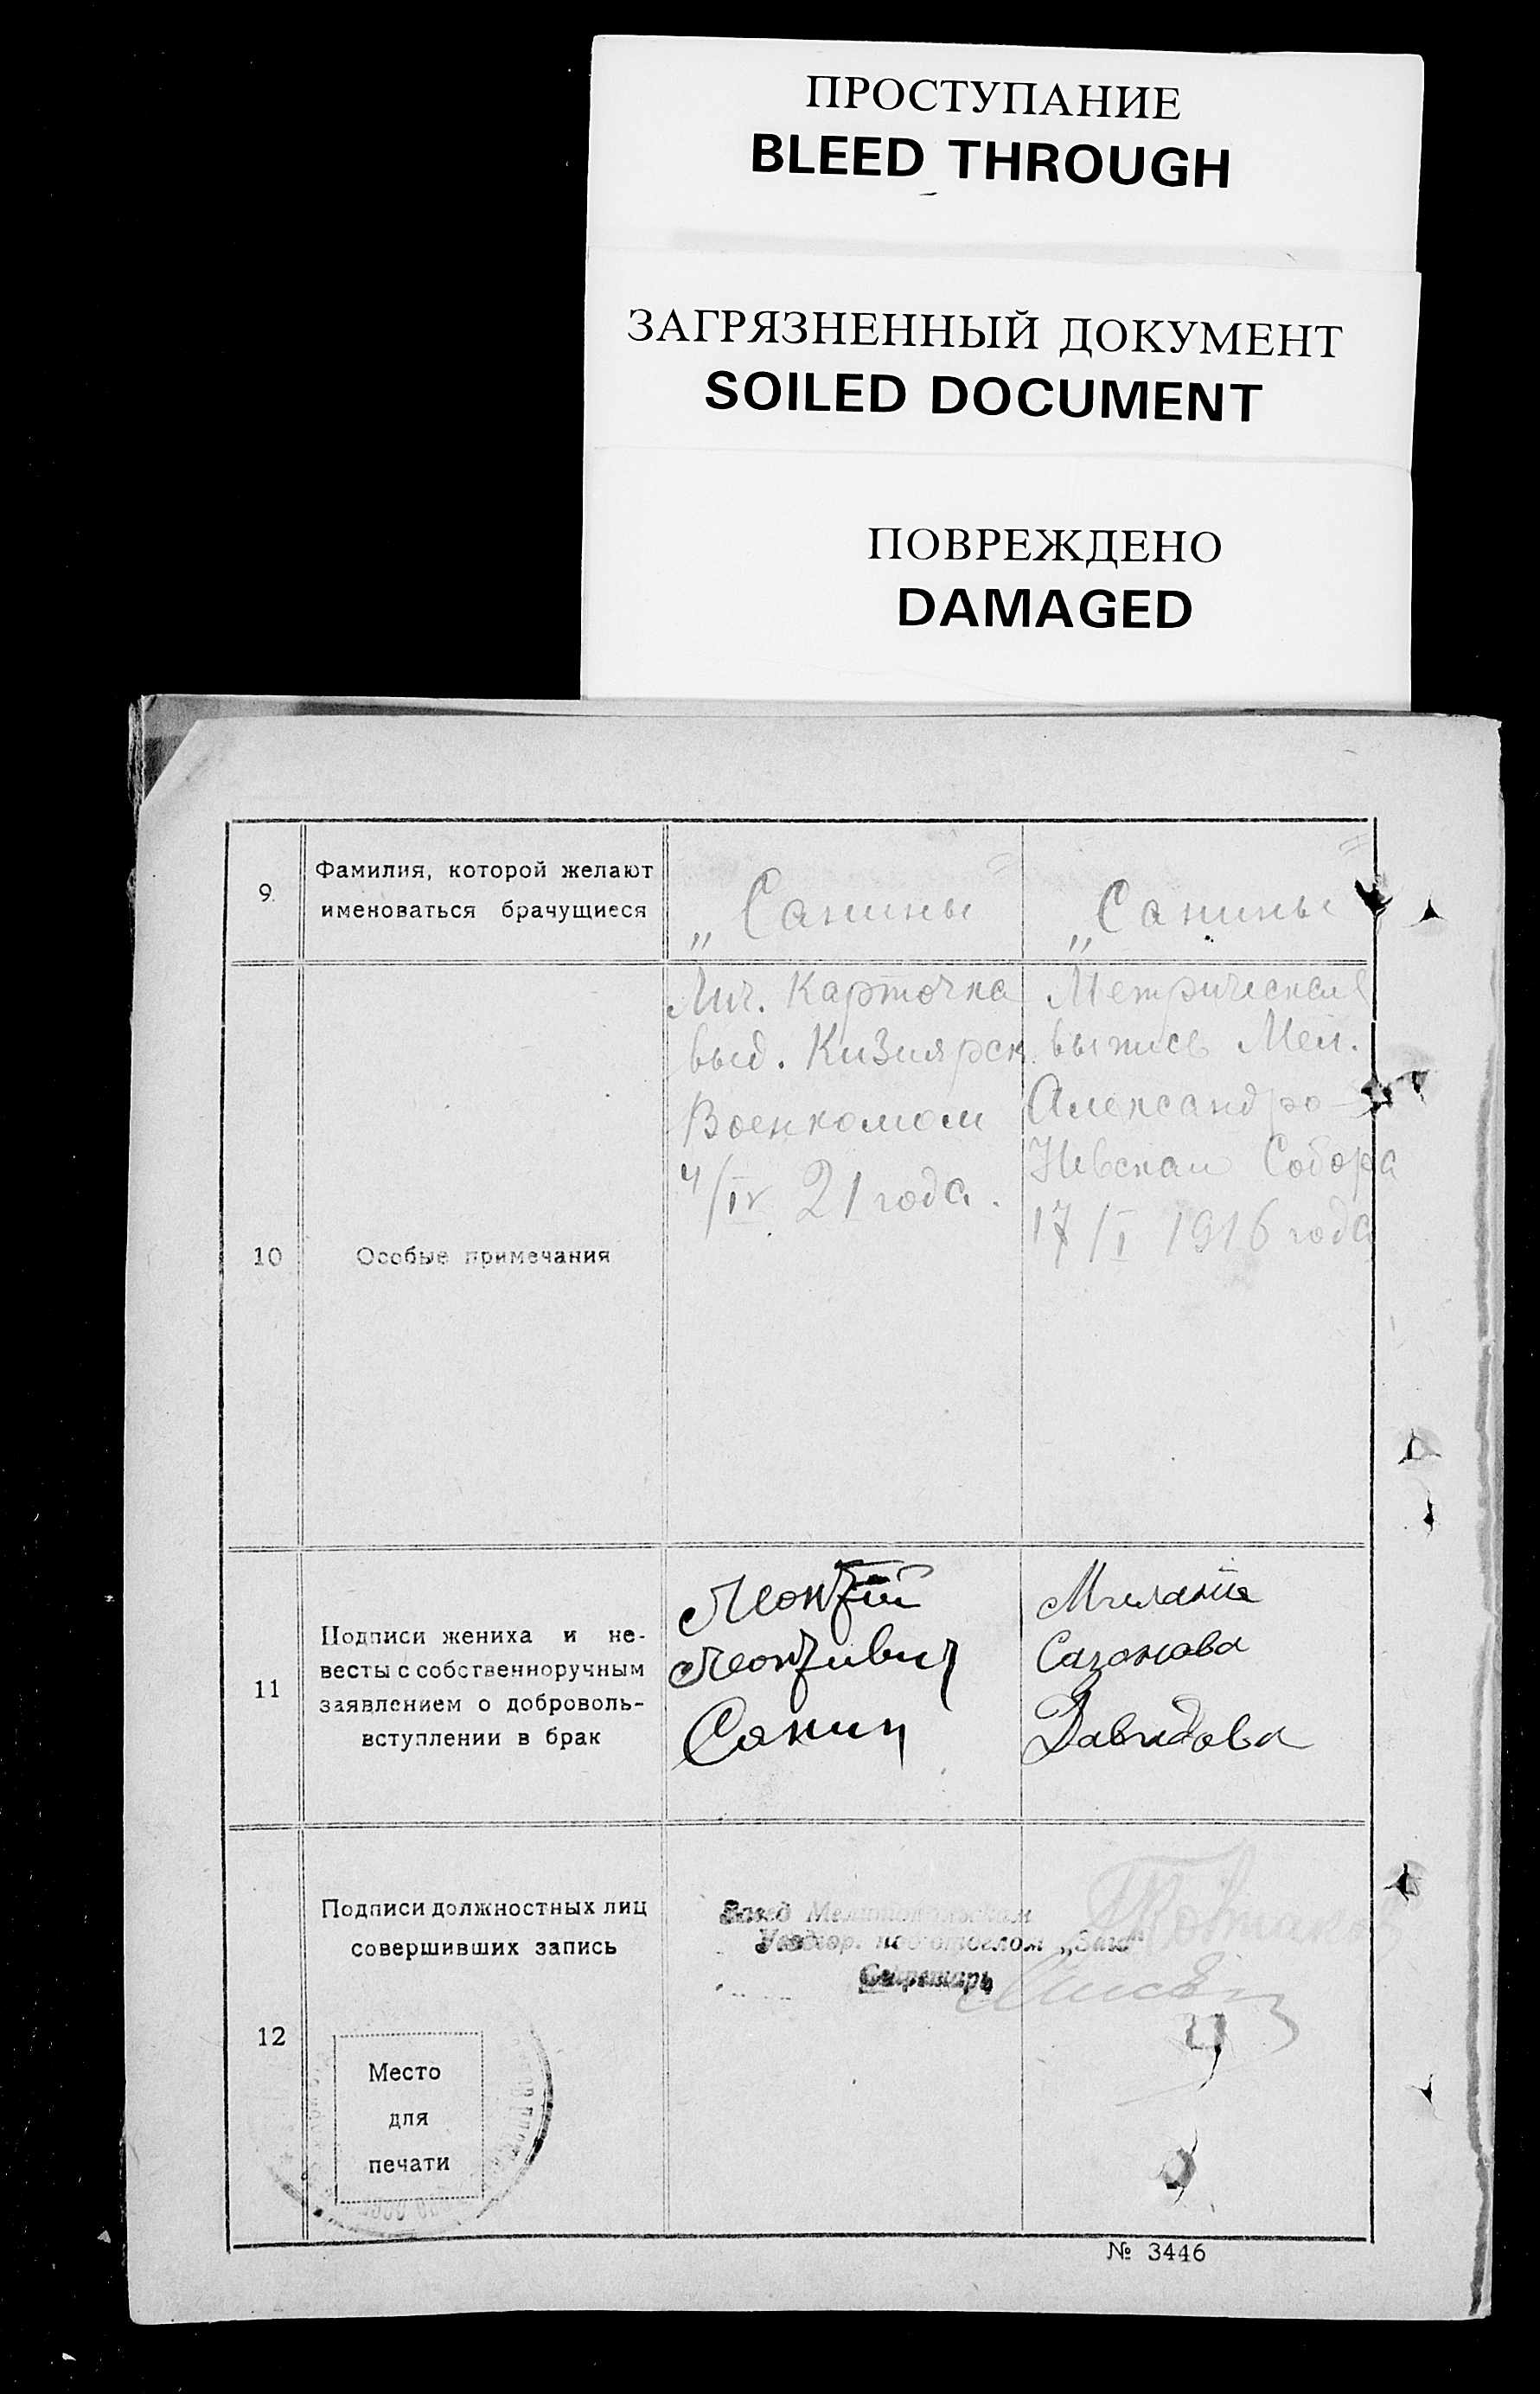 ПРОСТУПАНИЕ
BLEED THROUGH
ЗАГРЯЗНЕННЫЙ ДОКУМЕНТ
SOILED DOCUMENT
ПОВРЕЖДЕНО
DAMAGED
9
Фамилия, которой желают
именоваться брачущиеся
„Санины"
„Санины"
10
Особые примечания
Лич. Карточка
выд. Кизиярск.
Военкомом
4/IV 21 года.
Метрическая
выпись Мел.
Александро-
Невскаго Собора
17/I 1916 года
11
Подписи жениха и не-
весты с собственноручным
заявлением о доброволь-
вступлении в брак
Леонтий
Леонтивич
Санин
Миланiя
Сазонова
Давидова
12
Подписи должностных лиц
совершивших запись
Завед Мелитопольским
подотделом „Загс"
Секретарь
Место
для
печати
№ 3446